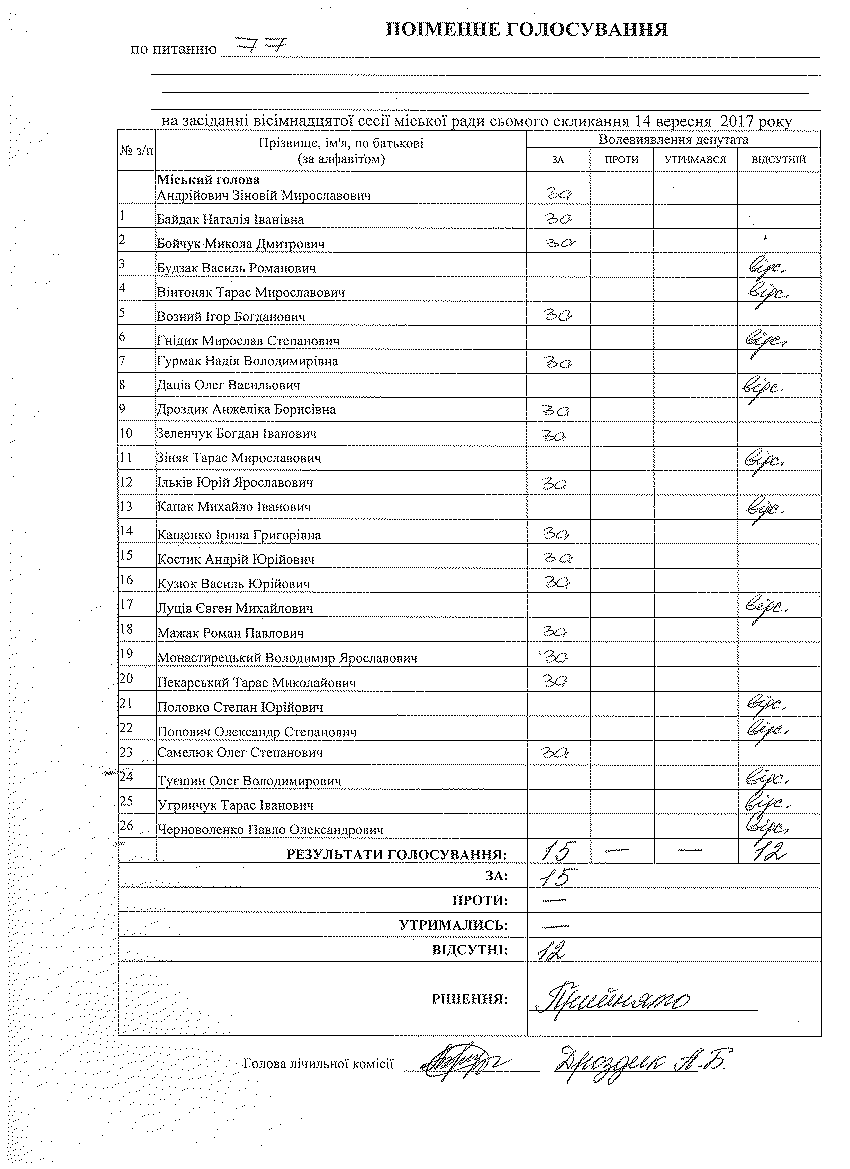 ПОІМЕННЕ ГОЛОСУВАННЯ
по питанню 77
на засіданні вісімнадцятої сесії міської ради сьомого скликання 14 вересня 2017 року
№ з/п Прізвище, ім'я, по батькові (за алфавітом) Волевиявлення депутата
ЗА ПРОТИ УТРИМАВСЯ ВІДСУТНІЙ
Міський голова
Андрійович Зіновій Мирославович за
1 Байдак Наталія Іванівна за
2 Бойчук Микола Дмитрович за
3 Будзак Василь Романович відс.
4 Вінтоняк Тарас Мирославович відс.
5 Возний Ігор Богданович за
6 Гнідик Мирослав Степанович відс.
7 Гурмак Надія Володимирівна за
8 Даців Олег Васильович відс.
9 Дроздик Анжеліка Борисівна за
10 Зеленчук Богдан Іванович за
11 Зіняк Тарас Мирославович відс.
12 Ільків Юрій Ярославович за
13 Капак Михайло Іванович відс.
14 Кащенко Ірина Григорівна за
15 Костик Андрій Юрійович за
16 Кузюк Василь Юрійович за
17 Луців Євген Михайлович відс.
18 Мажак Роман Павлович за
19 Монастирецький Володимир Ярославович за
20 Пекарський Тарас Миколайович за
21 Половко Степан Юрійович відс.
22 Попович Олександр Степанович відс.
23 Самелюк Олег Степанович за
24 Туєшин Олег Володимирович відс.
25 Угринчук Тарас Іванович відс.
26 Черноволенко Павло Олександрович відс.
РЕЗУЛЬТАТИ ГОЛОСУВАННЯ: 15 — — 12
ЗА: 15
ПРОТИ: —
УТРИМАЛИСЬ: —
ВІДСУТНІ: 12
РІШЕННЯ: Прийнято
Голова лічильної комісії Дроздик А.Б.